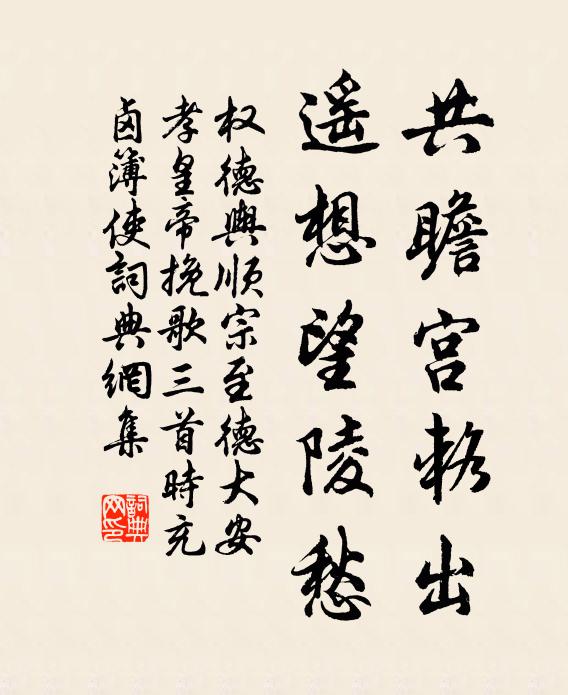 共瞻宫輅出
遥想望陵愁
权德輿顺宗至德大安
孝皇帝挽歌三首時充
卤簿使詞典網集
詞典网印